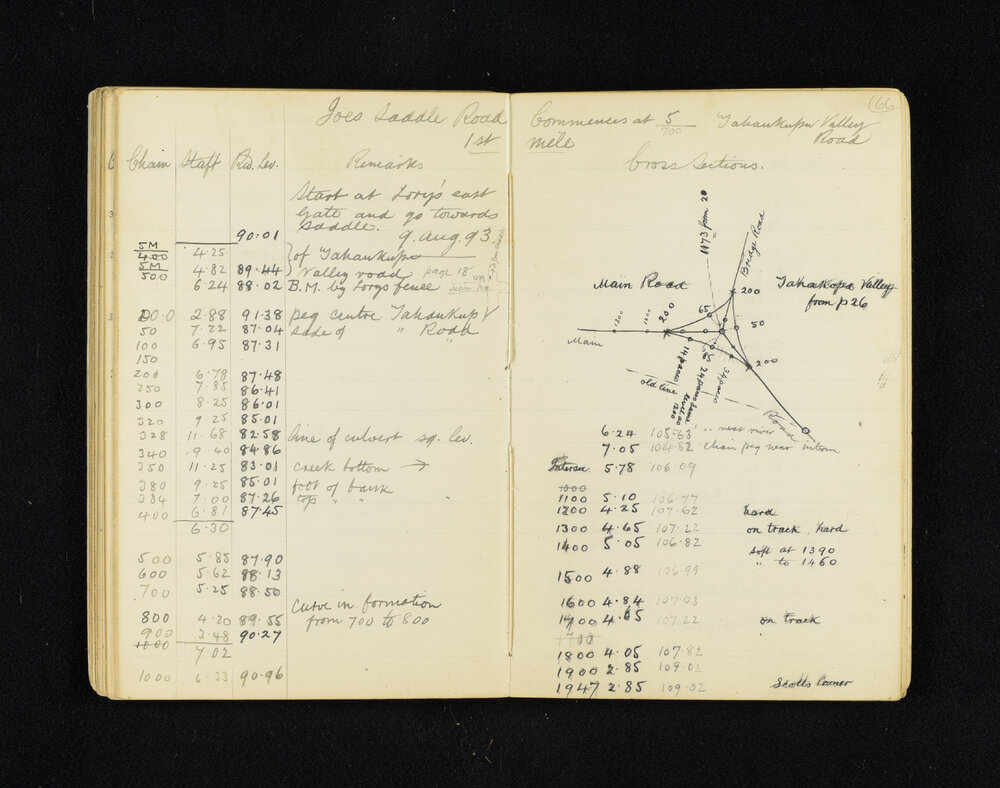 Joes Saddle Road
1st
Chain Staff Rd. lev. Remarks
Start at Lory's east
Gate and go towards
Saddle.
90.01 9. Aug. 93
5M
400 4.25 of Tahaukupa
5M
500 4.82 89.44 Valley road page 18
6.24 88.02 B.M. by Lorys fence
000 2.88 91.38 peg centre Tahaukup V
50 7.22 87.04 side of " Road
100 6.95 87.31 "
150
200 6.78 87.48
250 7.85 86.41
300 8.25 86.01
320 9.25 85.01
328 11.68 82.58 line of culvert sq. lev.
340 9.40 84.86
350 11.25 83.01 creek bottom →
380 9.25 85.01 foot of bank
384 7.00 87.26 top " "
400 6.81 87.45
6.30
500 5.85 87.90
600 5.62 88.13
700 5.25 88.50
Curve in formation
800 4.20 89.55 from 700 to 800
900 3.48 90.27
1000 7.02
1000 6.33 90.96
66
Commences at 5 Tahaukupa Valley
700 Road
mile
Cross Sections.
1173 from 20
Bridge Road
Main Road
Tahakopa Valley
from p 26
200
200
65
50
1300
1200
Main
65
200
14 paces
24 paces
34 paces
old line
1200
Road
6.24 105.63 " " near river
7.05 104.82 chain peg near interm
Intersec. 5.78 106.09
1000
1100 5.10 106.77
1200 4.25 107.62 hard
1300 4.65 107.22 on track, hard
1400 5.05 106.82
soft at 1390
" to 1460
1500 4.88 106.99
1600 4.84 107.03
1700 4.65 107.22 on track
1700
1800 4.05 107.82
1900 2.85 109.02
1947 2.85 109.02 Scotts Corner